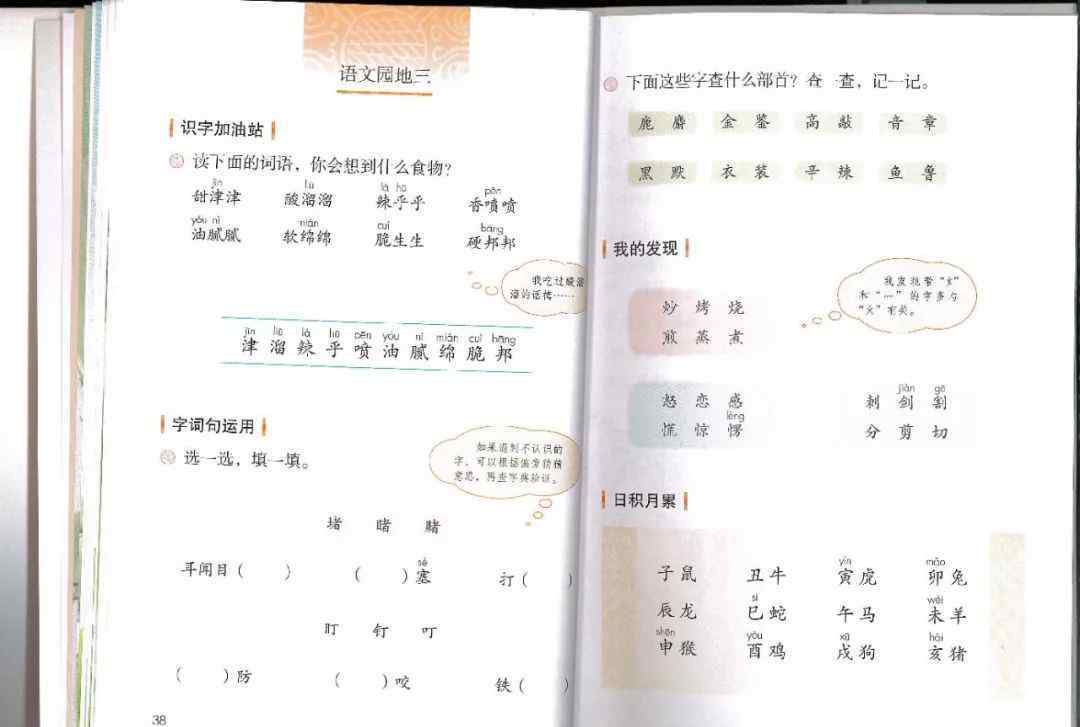 语文园地三
识字加油站
读下面的词语，你会想到什么食物？
jīn liū là hū pēn
甜津津 酸溜溜 辣乎乎 香喷喷
yóu nì mián cuì bāng
油腻腻 软绵绵 脆生生 硬邦邦
我吃过酸溜
溜的话梅……
jīn liū là hū pēn yóu nì mián cuì bāng
津 溜 辣 乎 喷 油 腻 绵 脆 邦
字词句运用
选一选，填一填。
如果遇到不认识的
字，可以根据偏旁猜猜
意思，再查字典验证。
堵 睹 赌
sè
耳闻目（ ） （ ）塞 打（ ）
盯 钉 叮
（ ）防 （ ）咬 铁（ ）
38
下面这些字查什么部首？查一查，记一记。
鹿 麝 金 鉴 高 敲 音 章
黑 默 衣 装 辛 辣 鱼 鲁
我的发现
我发现带“火”
和“灬”的字多与
“火”有关。
炒 烤 烧
煎 蒸 煮
怒 恋 感
lèng
慌 惊 愣
jiàn gē
刺 剑 割
分 剪 切
日积月累
yín mǎo
子鼠 丑牛 寅虎 卯兔
sì wèi
辰龙 巳蛇 午马 未羊
shēn yǒu xū hài
申猴 酉鸡 戌狗 亥猪